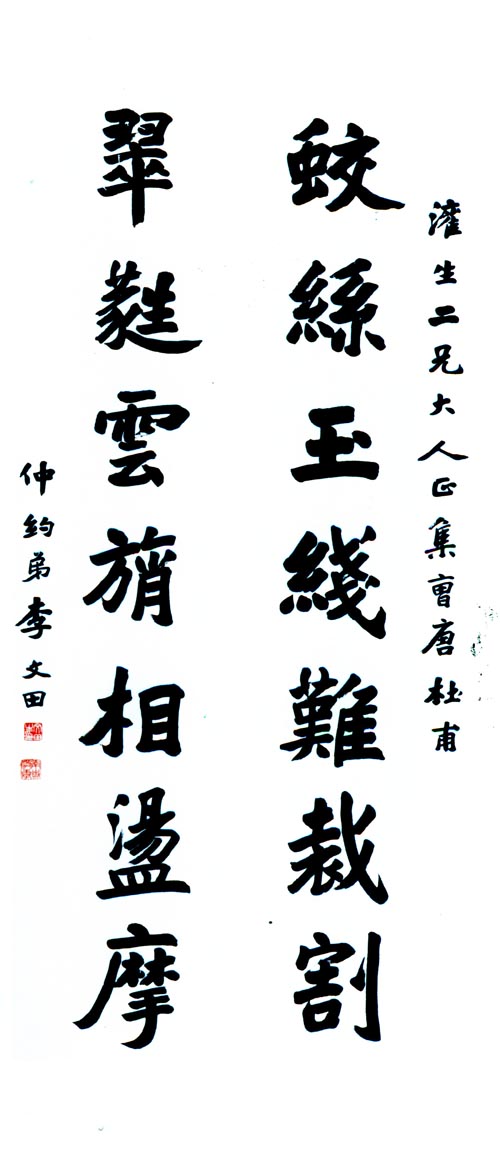 濯生二兄大人正集曹唐杜甫
蛟絲玉綫難裁割
翠蕤雲旓相盪摩
仲約弟李文田